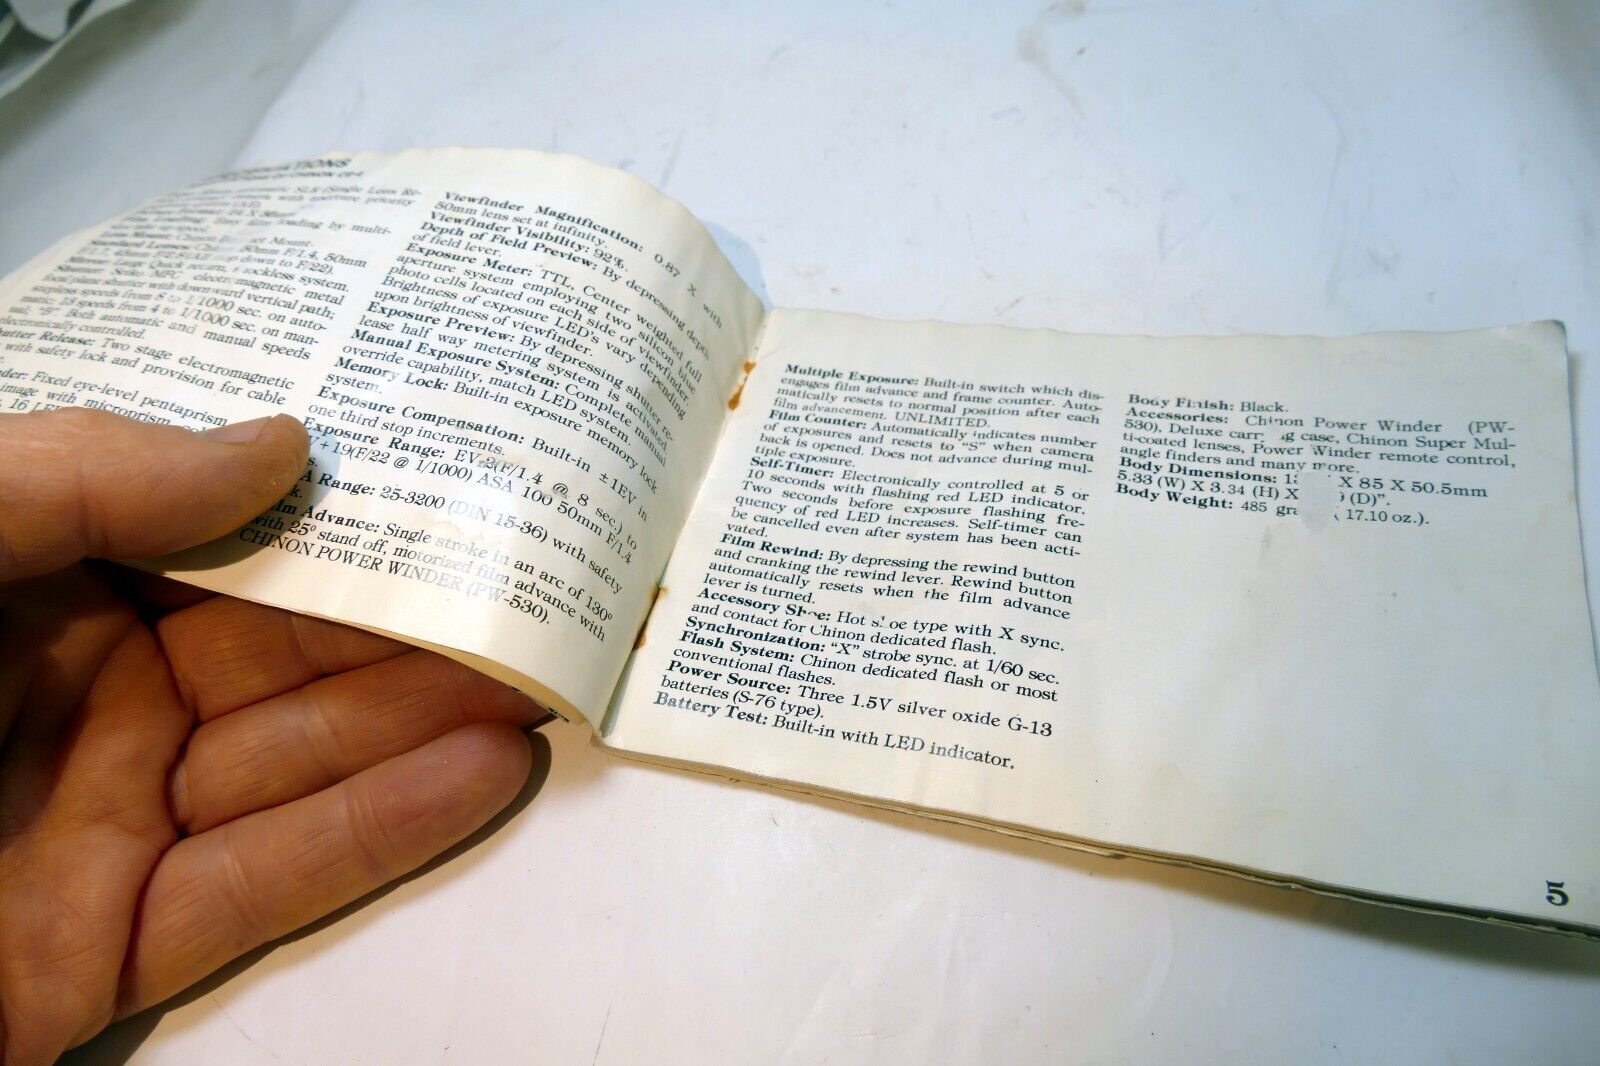 SPECIFICATIONS
CHINON CE-4
automatic SLR (Single Lens Re-
with aperture priority
(AE).
24 X 36mm
film loading by multi-
take up spool.
Mount.
Standard Lenses: 50mm F/1.4, 50mm
F/1.7, down to F/22).
Quick return, shockless system.
Shutter: Seiko MFC electromagnetic metal
focal plane shutter with downward vertical path;
stepless speeds from 8 to 1/1000 sec. on auto-
matic; 13 speeds from 4 to 1/1000 sec. on man-
ual, "B". Both automatic and manual speeds
electronically controlled.
Release: Two stage electromagnetic
with safety lock and provision for cable
Fixed eye-level pentaprism
image with microprism
16 LE
Viewfinder Magnification: 0.87 X with
50mm lens set at infinity.
Viewfinder Visibility: 92%.
Depth of Field Preview: By depressing depth
of field lever.
Exposure Meter: TTL, Center weighted full
aperture system employing two silicon blue
photo cells located on each side of viewfinder.
Brightness of exposure LED's vary depending
upon brightness of viewfinder.
Exposure Preview: By depressing shutter re-
lease half way metering system is activated.
Manual Exposure System: Complete manual
override capability, match LED system.
Memory Lock: Built-in exposure memory lock
system.
Exposure Compensation: Built-in ±1EV in
one third stop increments.
Exposure Range: EV-2(F/1.4 @ 8 sec.) to
+19(F/22 @ 1/1000) ASA 100 50mm F/1.4
Range: 25-3200 (DIN 15-36) with safety
Advance: Single stroke in an arc of 130°
with 25° stand off, motorized film advance with
CHINON POWER WINDER (PW-530).
Multiple Exposure: Built-in switch which dis-
engages film advance and frame counter. Auto-
matically resets to normal position after each
film advancement. UNLIMITED.
Film Counter: Automatically indicates number
of exposures and resets to "S" when camera
back is opened. Does not advance during mul-
tiple exposure.
Self-Timer: Electronically controlled at 5 or
10 seconds with flashing red LED indicator.
Two seconds before exposure flashing fre-
quency of red LED increases. Self-timer can
be cancelled even after system has been acti-
vated.
Film Rewind: By depressing the rewind button
and cranking the rewind lever. Rewind button
automatically resets when the film advance
lever is turned.
Accessory Shoe: Hot shoe type with X sync.
and contact for Chinon dedicated flash.
Synchronization: "X" strobe sync. at 1/60 sec.
Flash System: Chinon dedicated flash or most
conventional flashes.
Power Source: Three 1.5V silver oxide G-13
batteries (S-76 type).
Battery Test: Built-in with LED indicator.
Body Finish: Black.
Accessories: Chinon Power Winder (PW-
530), Deluxe case, Chinon Super Mul-
ti-coated lenses, Power Winder remote control,
angle finders and many more.
Body Dimensions: X 85 X 50.5mm
5.33 (W) X 3.34 (H) X (D)".
Body Weight: 485 17.10 oz.).
5